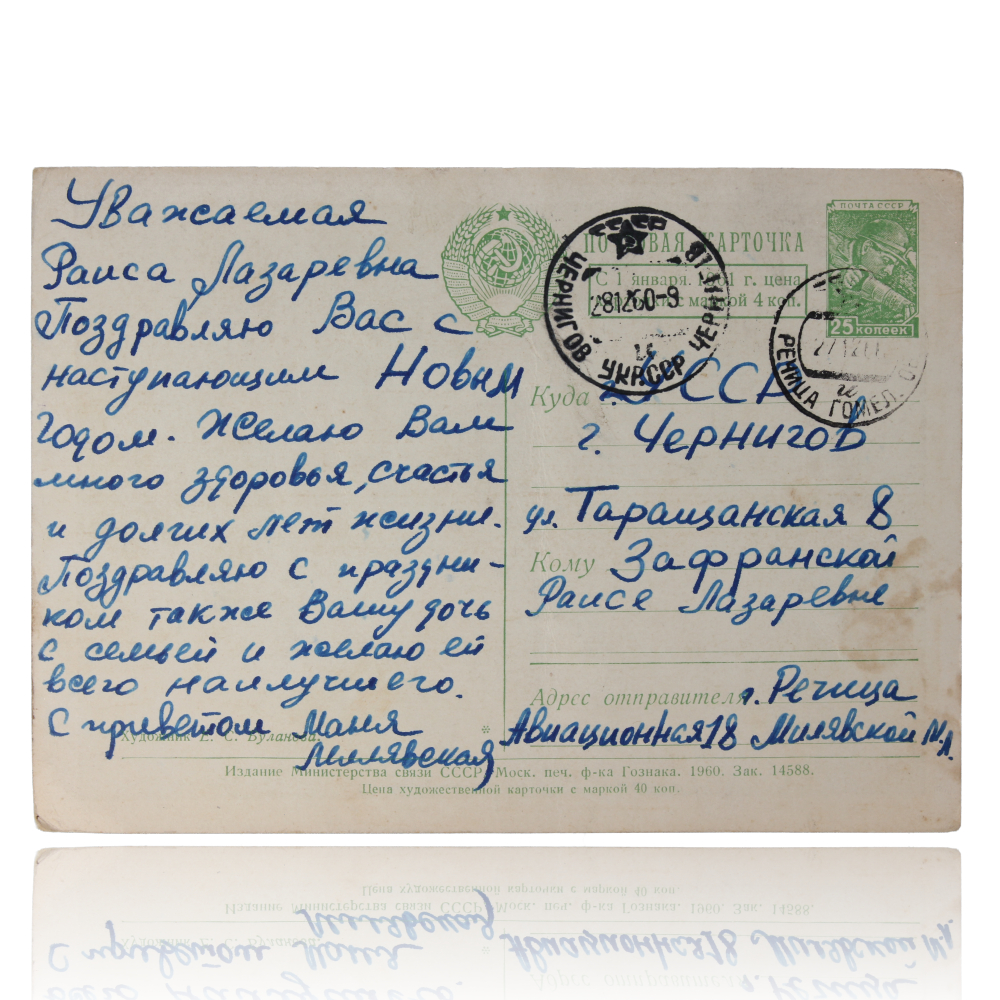 Уважаемая
Раиса Лазаревна
Поздравляю Вас с
наступающим Новым
годом. Желаю Вам
много здоровья, счастья
и долгих лет жизни.
Поздравляю с праздни-
ком также Вашу дочь
с семьей и желаю ей
всего наилучшего.
С приветом Маня
Милявская
ПОЧТОВАЯ КАРТОЧКА
С 1 января 1961 г. цена
с маркой 4 коп.
ПОЧТА СССР
25 КОПЕЕК
СССР
ЧЕРНИГОВ УКР.ССР
281260-9
РЕЧИЦА ГОМЕЛ.
Куда УССР
г. Чернигов
ул. Таращанская 8
Кому Зафранской
Раисе Лазаревне
Адрес отправителя г. Речица
Авиационная 18 Милявской М.Л.
Художник Е. С. Буланова.
Издание Министерства связи СССР. Моск. печ. ф-ка Гознака. 1960. Зак. 14588.
Цена художественной карточки с маркой 40 коп.